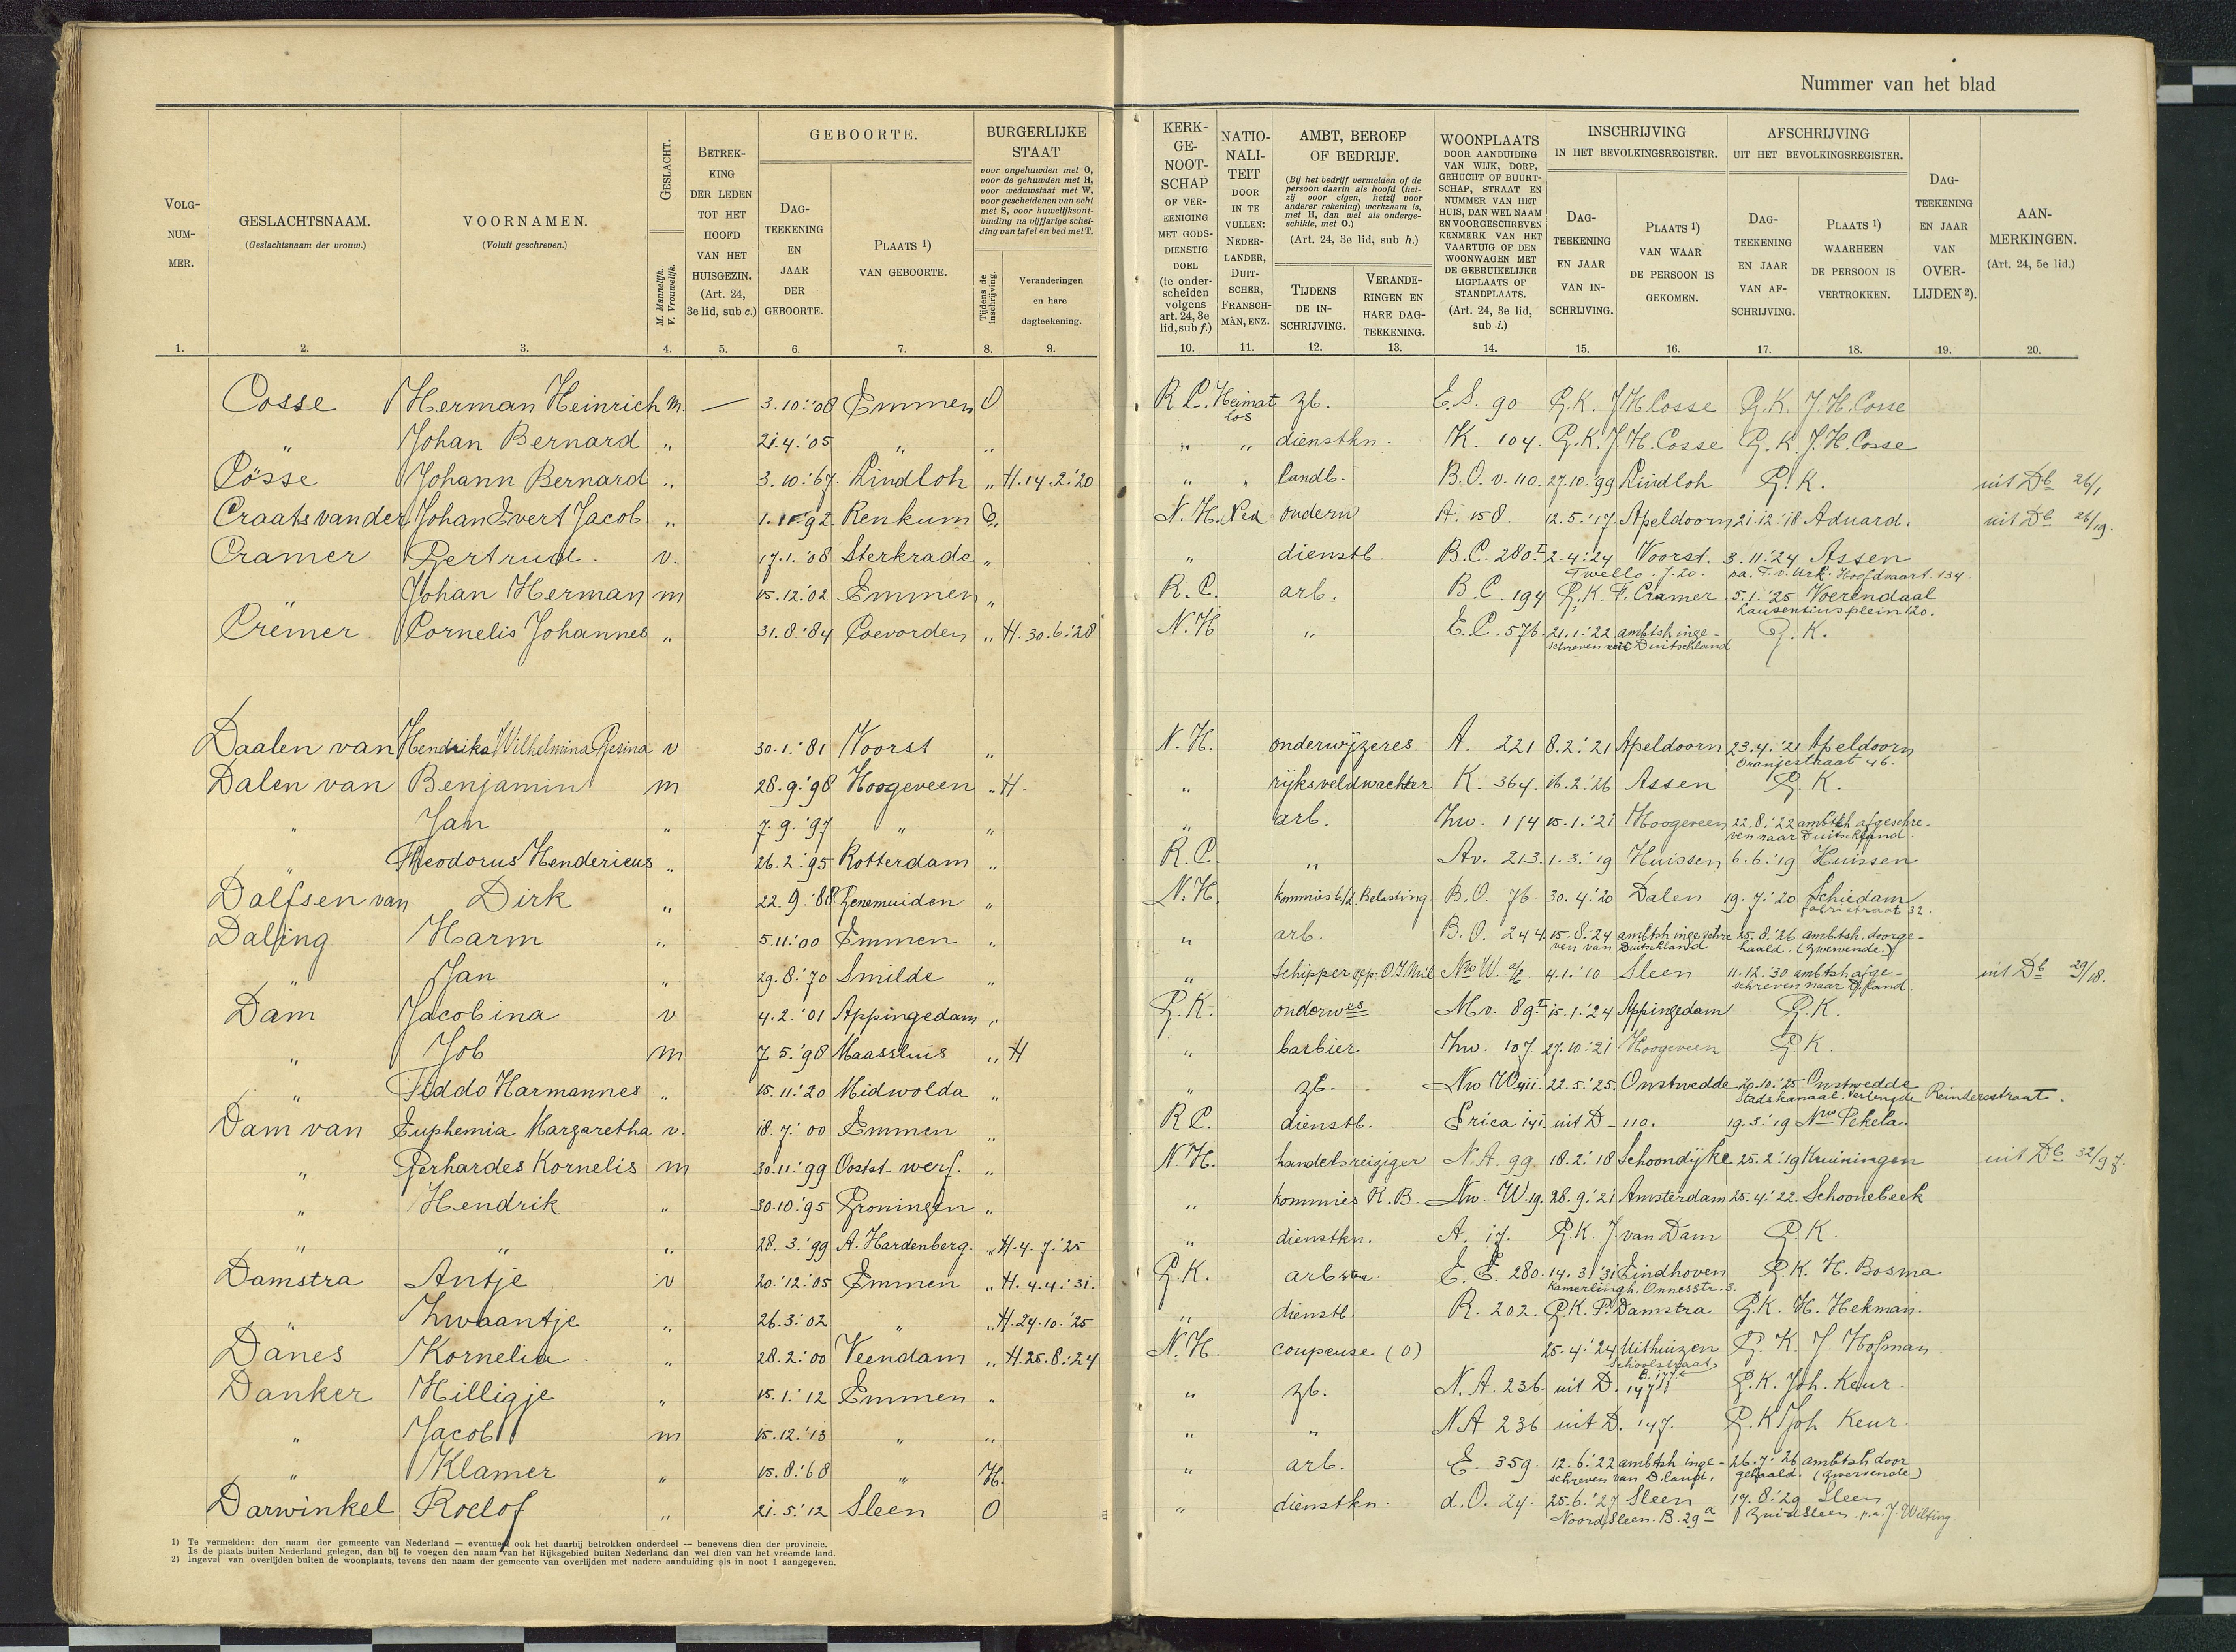 Nummer van het blad
VOLG-NUM-MER. GESLACHTSNAAM. (Geslachtsnaam der vrouw.) VOORNAMEN. (Voluit geschreven.) GESLACHT. M. Mannelijk. V. Vrouwelijk. BETREK-KING DER LEDEN TOT HET HOOFD VAN HET HUISGEZIN. (Art. 24, 3e lid, sub c.)
GEBOORTE. DAG-TEEKENING EN JAAR DER GEBOORTE. PLAATS 1) VAN GEBOORTE.
BURGERLIJKE STAAT voor ongehuwden met O, voor de gehuwden met H, voor weduwstaat met W, voor gescheidenen van echt met S, voor huwelijksont-binding na vijfjarige schei-ding van tafel en bed met T. Tijdens de inschrijving. Veranderingen en hare dagteekening.
KERK-GE-NOOT-SCHAP OF VER-EENIGING MET GODS-DIENSTIG DOEL (te onder-scheiden volgens art. 24, 3e lid, sub f.)
NATIO-NALI-TEIT DOOR IN TE VULLEN: NEDER-LANDER, DUIT-SCHER, FRANSCH-MAN, ENZ.
AMBT, BEROEP OF BEDRIJF. (Bij het bedrijf vermelden of de persoon daarin als hoofd (het-zij voor eigen, hetzij voor anderer rekening) werkzaam is, met H, dan wel als onderge-schikte, met O.) (Art. 24, 3e lid, sub h.) TIJDENS DE IN-SCHRIJVING. VERANDE-RINGEN EN HARE DAG-TEEKENING.
WOONPLAATS DOOR AANDUIDING VAN WIJK, DORP, GEHUCHT OF BUURT-SCHAP, STRAAT EN NUMMER VAN HET HUIS, DAN WEL NAAM EN VOORGESCHREVEN KENMERK VAN HET VAARTUIG OF DEN WOONWAGEN MET DE GEBRUIKELIJKE LIGPLAATS OF STANDPLAATS. (Art. 24, 3e lid, sub i.)
INSCHRIJVING IN HET BEVOLKINGSREGISTER. DAG-TEEKENING EN JAAR VAN IN-SCHRIJVING. PLAATS 1) VAN WAAR DE PERSOON IS GEKOMEN.
AFSCHRIJVING UIT HET BEVOLKINGSREGISTER. DAG-TEEKENING EN JAAR VAN AF-SCHRIJVING. PLAATS 1) WAARHEEN DE PERSOON IS VERTROKKEN.
DAG-TEEKENING EN JAAR VAN OVER-LIJDEN 2).
AAN-MERKINGEN. (Art. 24, 5e lid.)
1. 2. 3. 4. 5. 6. 7. 8. 9. 10. 11. 12. 13. 14. 15. 16. 17. 18. 19. 20.
Cosse Herman Heinrich m. — 3.10.'08 Emmen O. R C. Heimatlos zb. E.S. 90 G.K. J H Cosse G.K. J.H. Cosse
" Johan Bernard " 21.4.'05 " " " " dienstkn. K. 104. G.K. J.H. Cosse G.K. J.H. Cosse
Cösse Johann Bernard " 3.10.'67. Lindloh " H.14.2.'20 " " landb. B.O. v. 110. 27.10.'99 Lindloh G.K. uit Db 26/1
Craats van der Johan Evert Jacob " Renkum N.H. Ned onderw A. 158 12.5.'17. Apeldoorn 21.12.'18 Aduard. uit Db 26/19.
Cramer Gertrud. v. 17.1.'08 Sterkrade " " dienstb. B.C. 280 I 2.4.'24 Voorst. Twello. J.20. 3.11.'24 Assen pa. T. v. Urk. Hoofdvaart. 134.
" Johan Herman m 15.12.'02 Emmen " R.C. arb. B.C. 194 G.K. F. Cramer 5.1.'25 Voerendaal Lausentiusplein 120.
Cremer Cornelis Johannes " 31.8.'84 Coevorden " H.30.6.'28 N.H " E.C. 576. 21.1.'22 ambtsh inge-schreven uit Duitschland G.K.
Daalen van Hendrika Wilhelmina Gesina v 30.1.'81 Voorst " N.H. onderwijzeres A. 221 8.2.'21 Apeldoorn 23.4.'21 Apeldoorn Oranjestraat 46.
Dalen van Benjamin m 28.9.'98 Hoogeveen " H. " rijksveldwachter K. 364. 16.2.'26 Assen G.K.
" Jan " 7.9.'97 " " " arb. Zw. 114 15.1.'21 Hoogeveen 22.8.'22 ambtsh afgeschre-ven naar Duitschland.
" Theodorus Hendericus " 26.2.'95 Rotterdam " R.C. " Av. 213. 1.3.'19 Huissen 6.6.'19 Huissen
Dalfsen van Dirk " 22.9.'88 Genemuiden " N.H. kommies b/d Belasting B.O. 76 30.4.'20 Dalen 19.7.'20 Schiedam
Dalfing Harm " 5.11.'00 Emmen " " arb. B.O. 244. 15.8.'24 ambtsh ingeschre-ven van Duitschland 25.8.'26 ambtsh. doorge-haald. (Zwervende.)
" Jan " 29.8.'70 Smilde " " schipper gep. O.I. Mil 4.1.'10 Sleen 11.12.'30 ambtsh afge-schreven naar D.land. uit Db 29/18.
Dam Jacobina v 4.2.'01 Appingedam " G.K. onderwes Mv. 89 I 15.1.'24 Appingedam G.K.
" Job m 7.5.'98 Maassluis " H " barbier Zw. 107. 27.10.'21 Hoogeveen G.K.
" Fiddo Harmannes " 15.11.'20 Midwolda " " zb. Nw W. 22.5.'25. Onstwedde 20.10.'25 Onstwedde Stadskanaal. Verlengde Reindersstraat.
Dam van Euphemia Margaretha v. 18.7.'00 Emmen " R C. dienstb. Erica 141. uit D - 110. 19.5.'19 Nwe Pekela.
" Gerhardes Kornelis m 30.11.'99 Ooststwerf. " N.H. handelsreiziger N.A. 99. 18.2.'18 Schoondijke 25.2.'19 Kruiningen uit Db 32/97.
" Hendrik " 30.10.'95 Groningen " " kommies R.B. Nw. W.19. 28.9.'21 Amsterdam 25.4.'22. Schoonebeek
" " " 28.3.'99 A. Hardenberg. " H.4.7.'25 " dienstkn. A. 17. G.K. J. van Dam G.K.
Damstra Antje v 20.12.'05 Emmen " H.4.4.'31. G.K. arbster. E.E. 280. 14.3.'31 Eindhoven Kamerlingh. Onnesstr. 3. G.K. H. Bosma
" Zwaantje " 26.3.'02 " " H.24.10.'25 " dienstb. R. 202. G.K. P. Damstra G.K. H. Hekman.
Danes Kornelia " 28.2.'00 Veendam " H.25.8.'24 N.H. coupeuse (O) 25.4.'24 Uithuizen Schoolstraat G.K. J. Hofman.
Danker Hilligje " 15.1.'12 Emmen " " zb. N.A. 236. uit D. 147 G.K. Joh. Keur.
" Jacob m 15.12.'13 " " " " N A 236 uit D. 147. G.K Joh Keur.
" Klamer " 15.8.'68 " H. " arb. E. 359. 12.6.'22 ambtsh inge-schreven van D.land. 26.7.'26 ambtsh door gehaald. (zwervende)
Darwinkel Roelof " 21.5.'12 Sleen O " dienstkn. d.O. 24. 25.6.'27 Sleen Noord Sleen. B.29a 17.8.'29 Sleen Zuidsleen p.a. J. Wilting
1) Te vermelden: den naam der gemeente van Nederland — eventueel ook het daarbij betrokken onderdeel — benevens dien der provincie.
Is de plaats buiten Nederland gelegen, dan bij te voegen den naam van het Rijksgebied buiten Nederland dan wel dien van het vreemde land.
2) Ingeval van overlijden buiten de woonplaats, tevens den naam der gemeente van overlijden met nadere aanduiding als in noot 1 aangegeven.